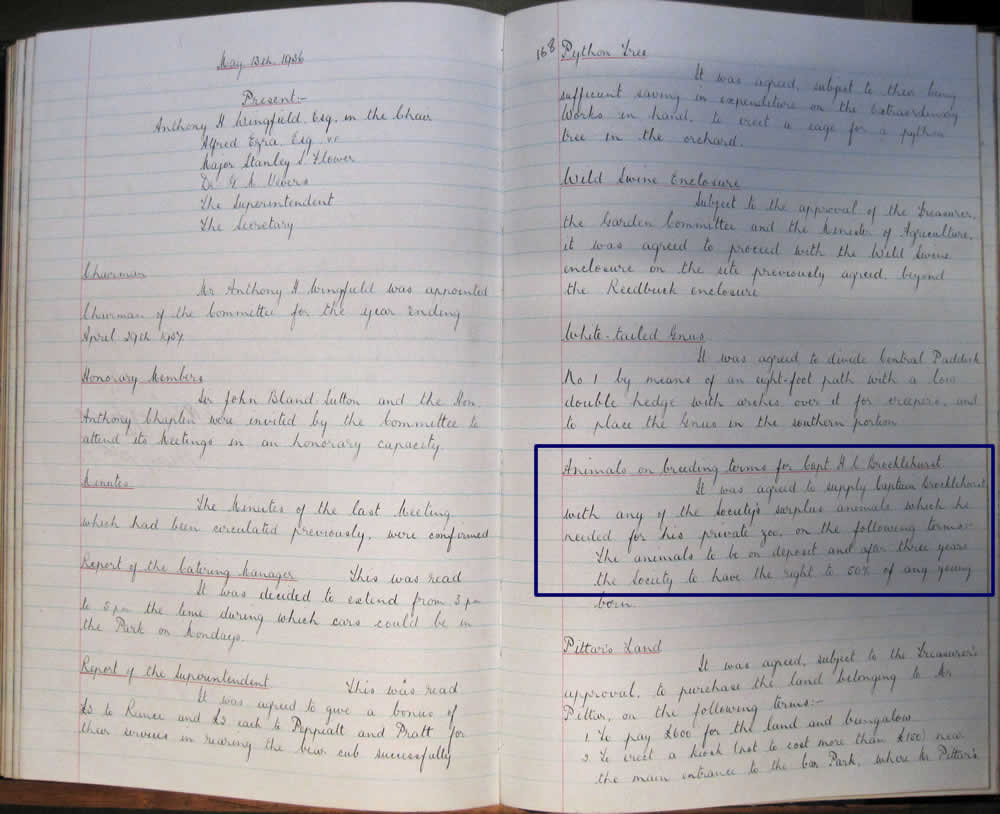 May 13th. 1936
Present:-
Anthony H Wingfield. Esq. in the Chair
Alfred Ezra Esq.
Major Stanley S Flower
Dr G M Vevers
The Superintendent
The Secretary
Chairman
Mr Anthony H Wingfield was appointed
Chairman of the Committee for the year ending
April 29th 1937.
Honorary Members
Sir John Bland Sutton and the Hon.
Anthony Chaplin were invited by the Committee to
attend its Meetings in an honorary capacity.
Minutes
The Minutes of the last Meeting
which had been circulated previously, were confirmed
Report of the Catering Manager This was read
It was decided to extend from 3 pm
to 5 pm the time during which cars could be in
the Park on Mondays.
Report of the Superintendent This was read
It was agreed to give a bonus of
£3 to and £2 each to Peppiatt and Pratt for
their services in rearing the bear cub successfully
168 Python Tree
It was agreed, subject to their being
sufficient saving in expenditure on the Extraordinary
Works in hand, to erect a cage for a python
tree in the orchard.
Wild Swine Enclosure
Subject to the approval of the Treasurer,
the Garden Committee and the Minister of Agriculture,
it was agreed to proceed with the Wild Swine
enclosure on the site previously agreed, beyond
the Reedbuck enclosure
White-tailed Gnus
It was agreed to divide Central Paddock
No 1 by means of an eight-foot path with a low
double hedge with arches over it for creepers, and
to place the Gnus in the southern portion
Animals on breeding terms for Capt H C Brocklehurst
It was agreed to supply Captain Brocklehurst
with any of the Society's surplus animals which he
needed for his private zoo, on the following terms:-
The animals to be on deposit and after three years
the Society to have the right to 50% of any young
born.
Pittar's Land
It was agreed, subject to the Treasurer's
approval, to purchase the land belonging to Mr
Pittar, on the following terms:-
1. To pay £600 for the land and bungalow
2. To erect a kiosk (not to cost more than £150) near
the main entrance to the Car Park, where Mr Pittar's